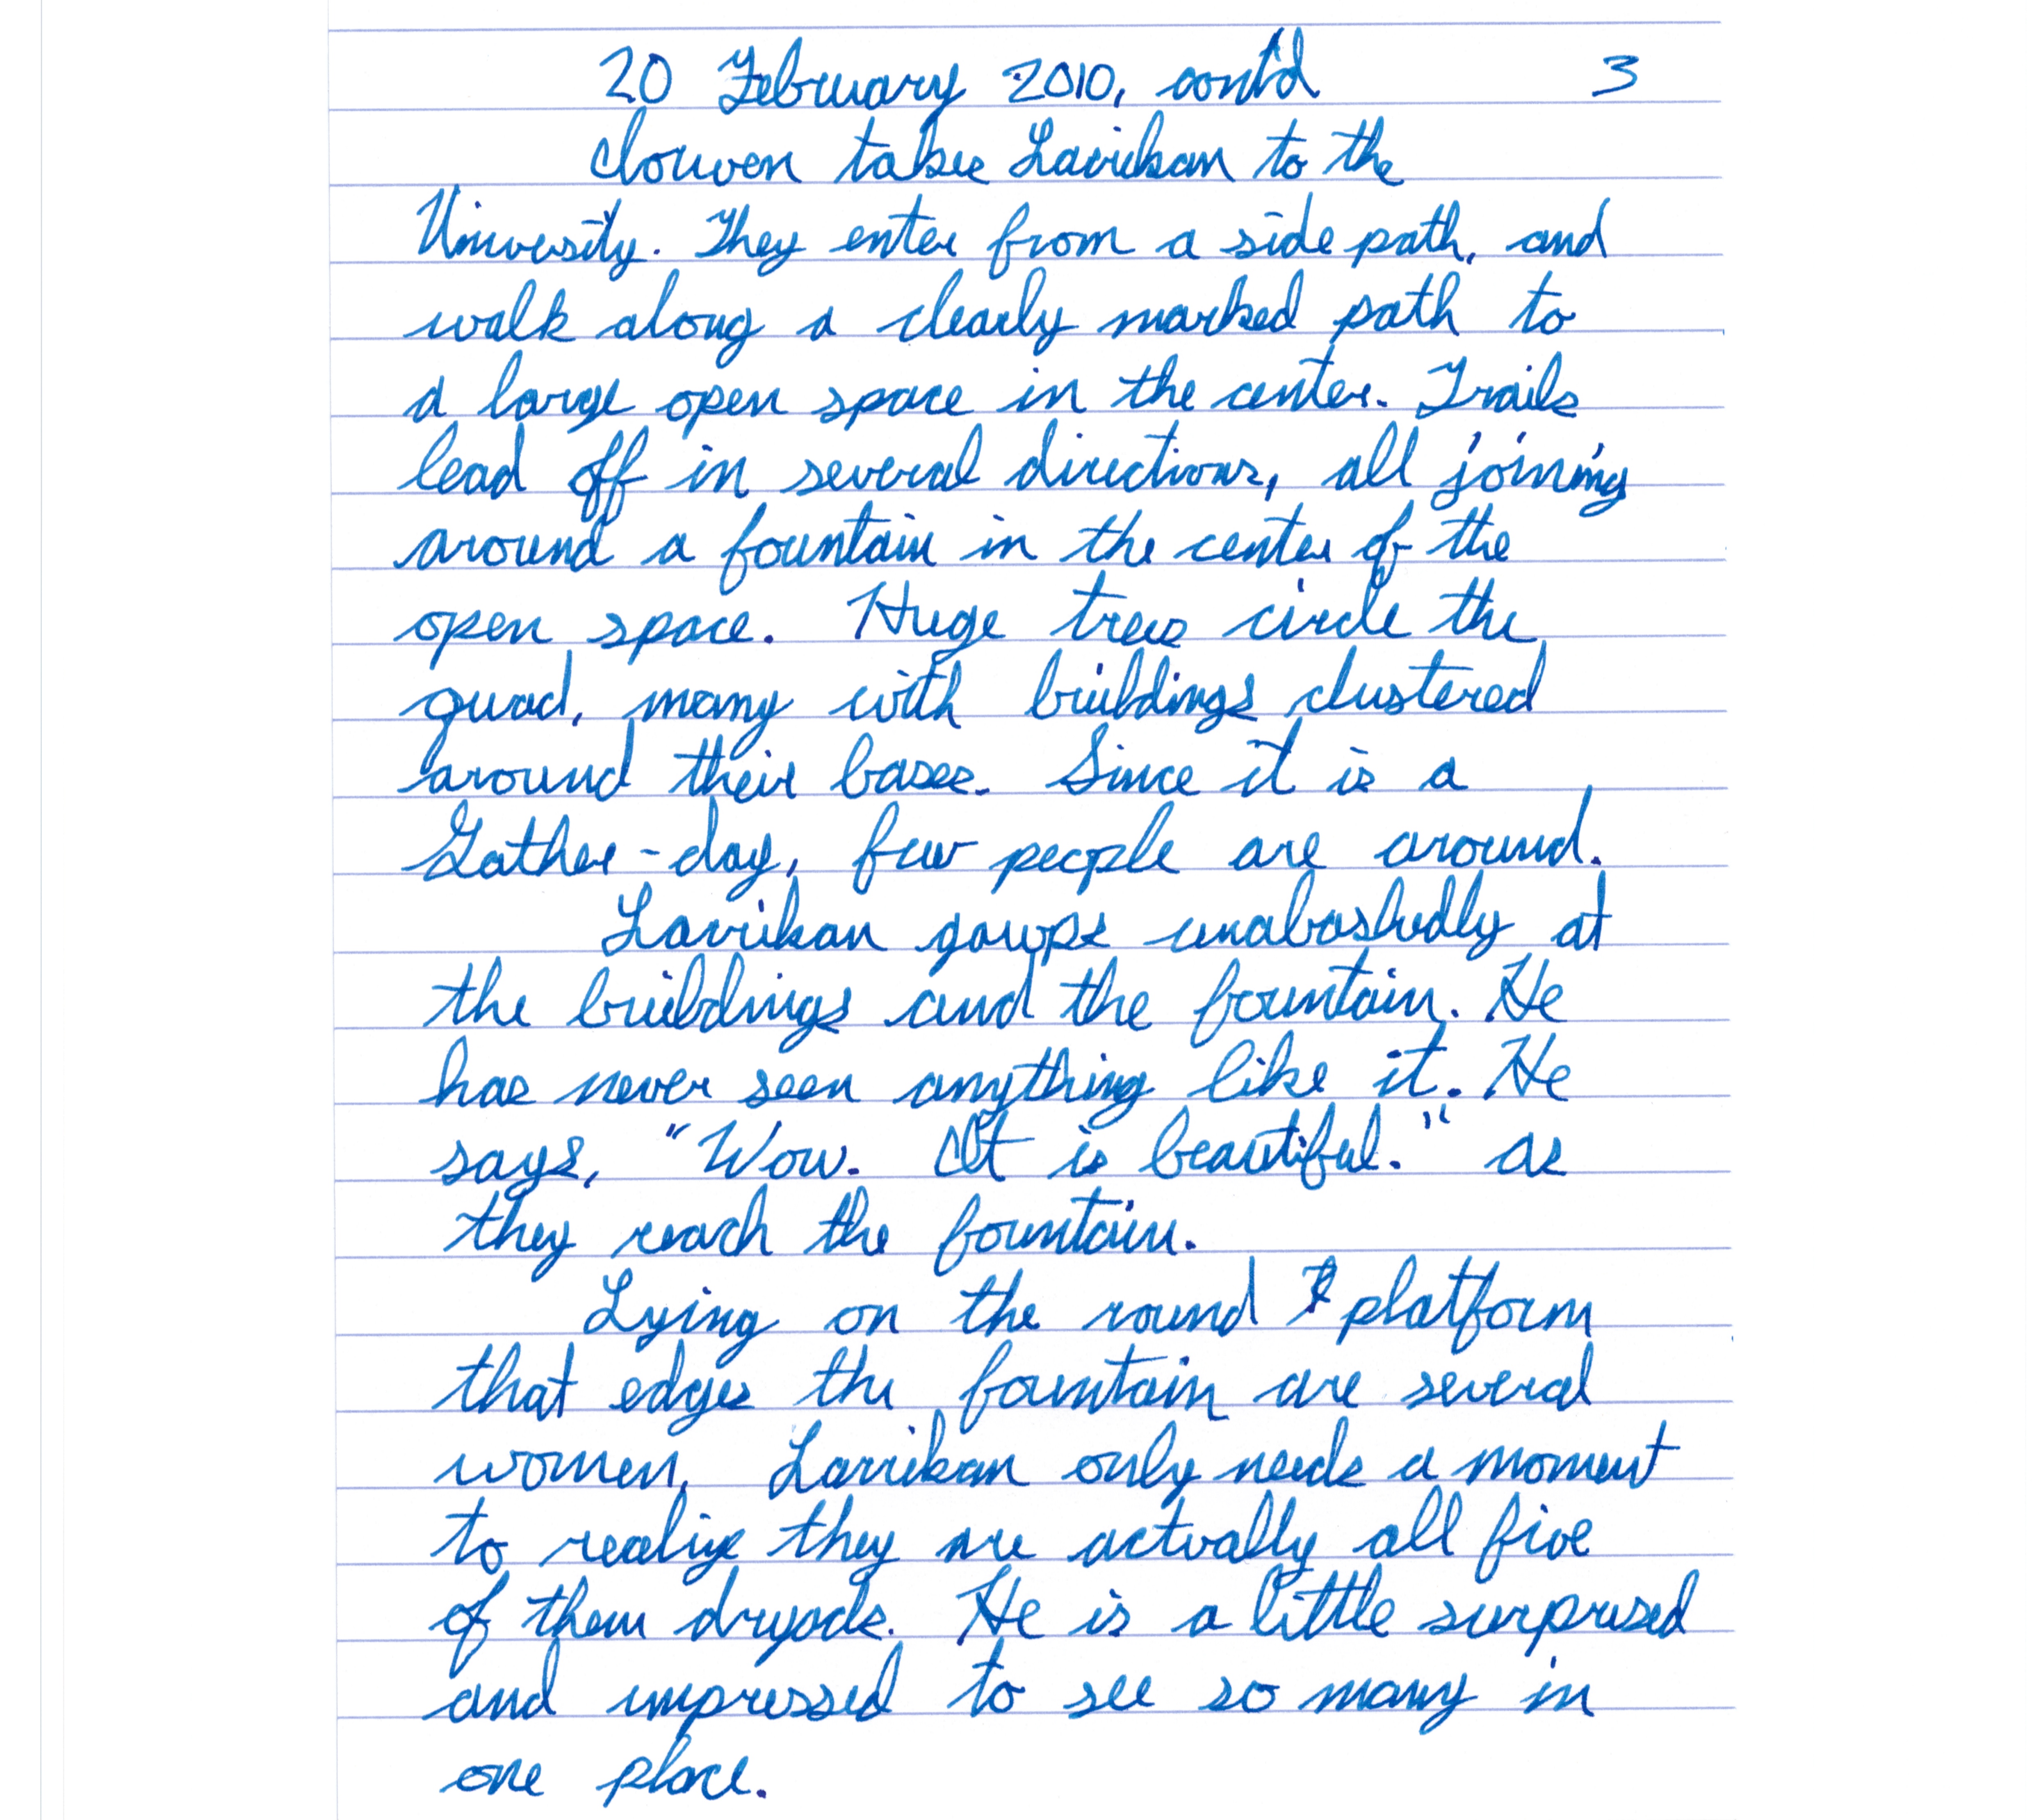 20 February 2010, cont'd 3
Clouven takes Lavrikan to the
University. They enter from a side path, and
walk along a clearly marked path to
a large open space in the center. Trails
lead off in several directions, all joining
around a fountain in the center of the
open space. Huge trees circle the
quad, many with buildings clustered
around their bases. Since it is a
Gather-day, few people are around.
Lavrikan gawps unabashedly at
the buildings and the fountain. He
has never seen anything like it. He
says, "Wow. It is beautiful." as
they reach the fountain.
Lying on the round platform
that edges the fountain are several
women. Lavrikan only needs a moment
to realize they are actually all five
of them dryads. He is a little surprised
and impressed to see so many in
one place.